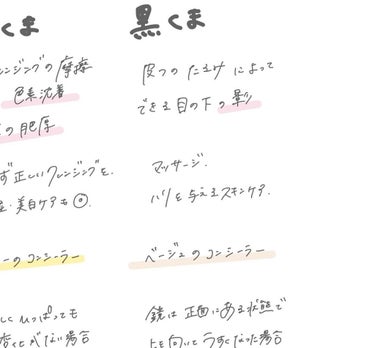 くま
レンジングの摩擦
色素沈着
の肥厚
ず正しいクレンジングを.
美白ケアも◎.
ーのコンシーラー
しくひっぱっても
変化がない場合
黒くま
皮フのたるみによって
できる目の下の影
マッサージ.
ハリを与えるスキンケア.
ベージュのコンシーラー
鏡は正面にある状態で
上を向いてうすくなった場合